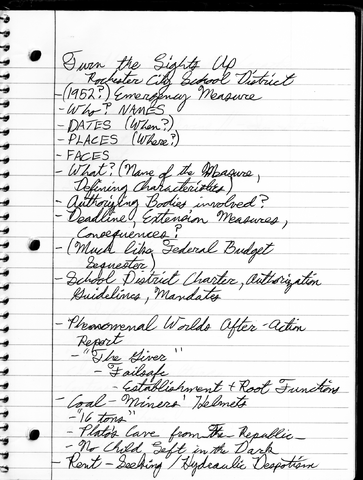 Turn the Lights Up
Rochester City School District
- (1952?) Emergency Measure
- Who? NAMES
- DATES (When?)
- PLACES (Where?)
- FACES
- What? (Name of the Measure,
Defining Characteristics)
- Authorizing Bodies involved?
- Deadline, Extension Measures,
Consequences?
- (Much like Federal Budget
Sequester)
- School District Charter, Authorization
Guidelines, Mandates
- Phenomenal Worlds After-Action
Report
- "The Giver"
- Failsafe
- Establishment + Root Functions
- Coal - Miners' Helmets
- "16 tons"
- Plato's Cave from The Republic -
- No Child Left in the Dark
- Rent-Seeking / Hydraulic Despotism